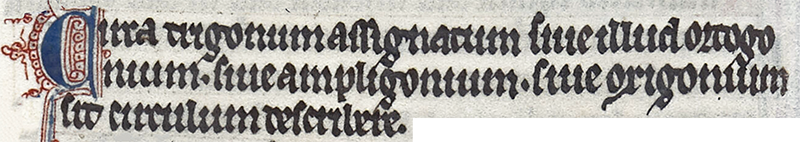 Circa trigonum assignatum siue illud ortogo
nium· siue ampligonium· siue oxigonium
sit circulum describere.